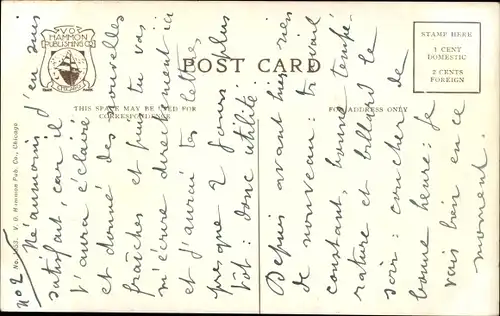 V.O. HAMMON
PUBLISHING CO.
CHICAGO
POST CARD
STAMP HERE
1 CENT
DOMESTIC
2 CENTS
FOREIGN
THIS SPACE MAY BE USED FOR
CORRESPONDENCE
FOR ADDRESS ONLY
V. O. Hammon Pub. Co., Chicago
No 2
Néanmoins j'en suis
satisfait, car il
t'aura éclairé
et donné des nouvelles
fraîches et puis tu vas
m'écrire directement ici
et j'aurai tes lettres
presque 2 jours plus
tôt: donc utilité.
Depuis avant hier rien
de nouveau: travail
constant, bonne tempé-
rature et billard le
soir: coucher de
bonne heure: Je
vais bien en ce
moment.